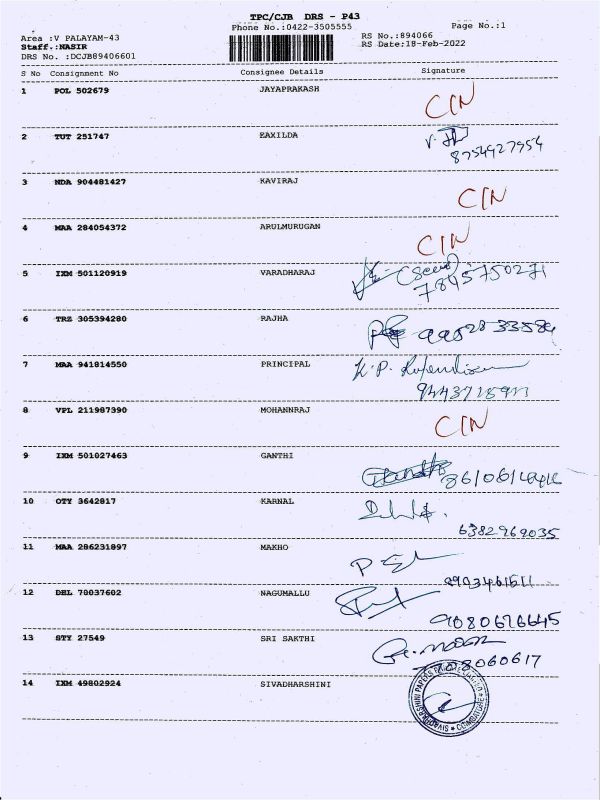 TPC/CJB DRS - P43
Phone No.:0422-3505555 Page No.:1
Area :V PALAYAM-43 RS No.:894066
Staff.:NASIR RS Date:18-Feb-2022
DRS No. :DCJB89406601
S No Consignment No Consignee Details Signature
1 POL 502679 JAYAPRAKASH CIN
2 TUT 251747 EAXILDA
8754927954
3 NDA 904481427 KAVIRAJ CIN
4 MAA 284054372 ARULMURUGAN CIN
5 IXM 501120919 VARADHARAJ
7845750271
6 TRZ 305394280 RAJHA
7 MAA 941814550 PRINCIPAL K.P.
8 VPL 211987390 MOHANNRAJ CIN
9 IXM 501027463 GANTHI
10 OTY 3642817 KARNAL
6382969035
11 MAA 286231897 MAKHO
12 DEL 70037602 NAGUMALLU
9080676645
13 STY 27549 SRI SAKTHI
14 IXM 49802924 SIVADHARSHINI
SIVADHARSHINI PAPERS PRIVATE LIMITED * COIMBATORE *